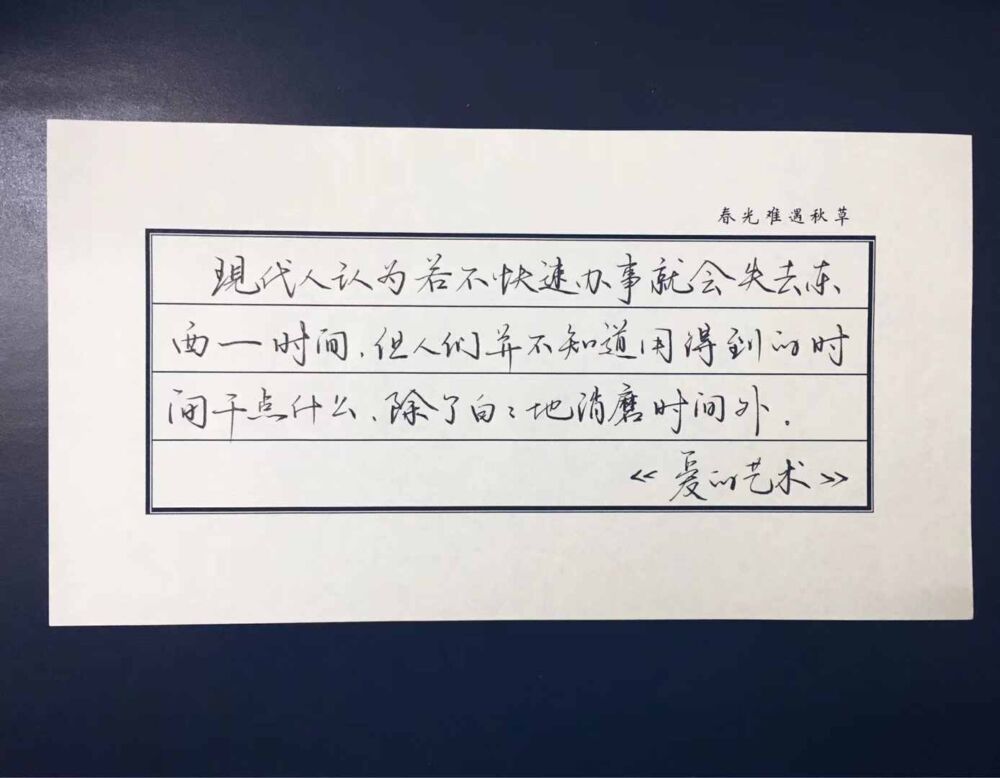 春光难遇秋草
现代人认为若不快速办事就会失去东
西一时间，但人们并不知道用得到的时
间干点什么、除了白々地消磨时间外．
《爱的艺术》